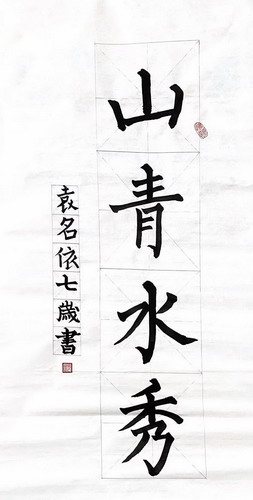 山青水秀
袁名依七歲書